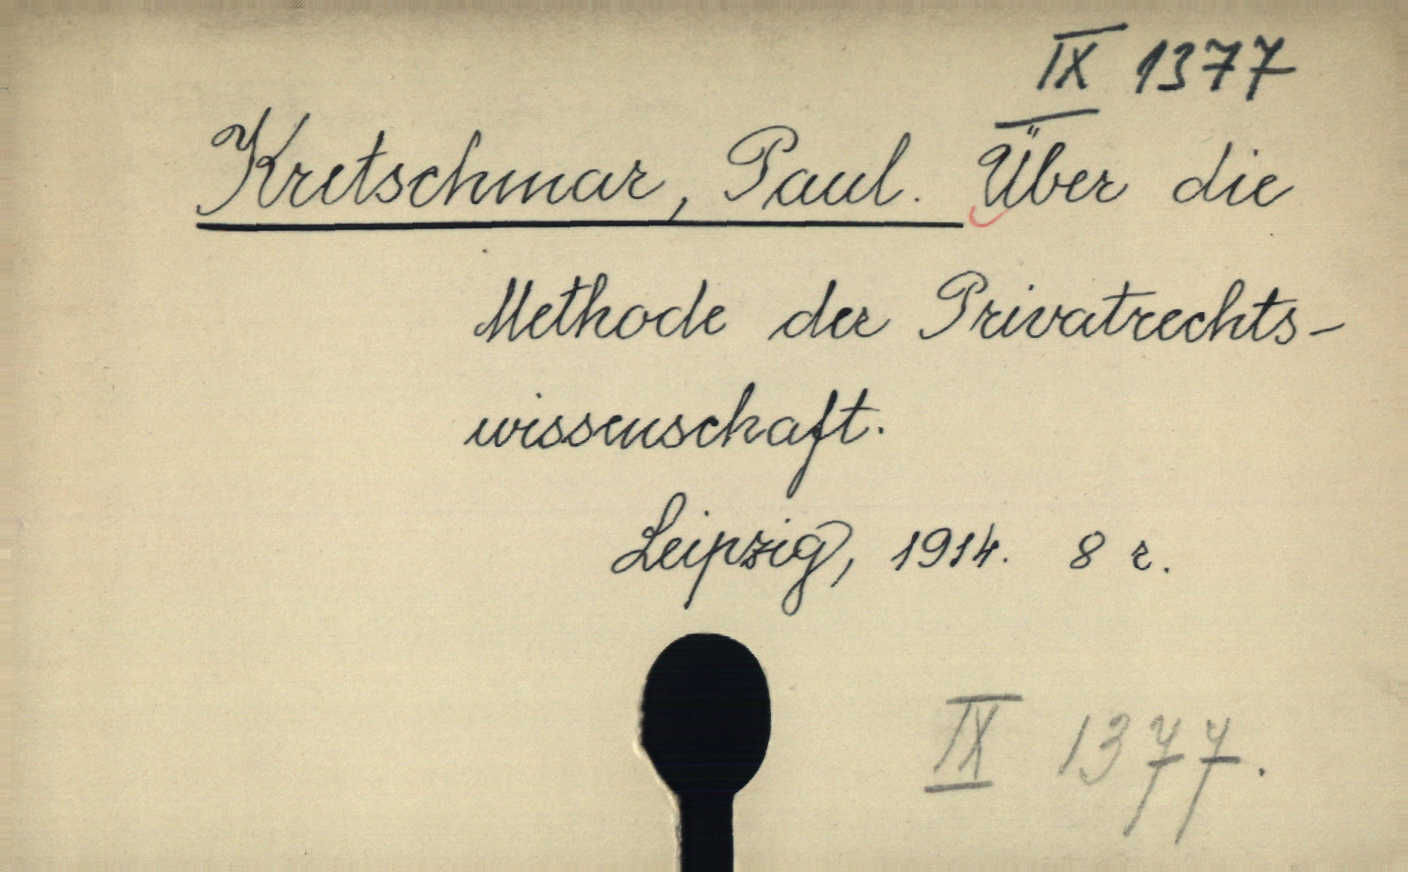 IX 1377
Kretschmar, Paul. Über die
Methode der Privatrechts-
wissenschaft.
Leipzig, 1914. 8 r.
IX 1377.